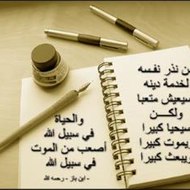 من نذر نفسه
لخدمة دينه
سيعيش متعبا
ولكن
سيحيا كبيرا
ويموت كبيرا
ويبعث كبيرا
والحياة
في سبيل الله
أصعب من الموت
في سبيل الله
- ابن باز - رحمه الله